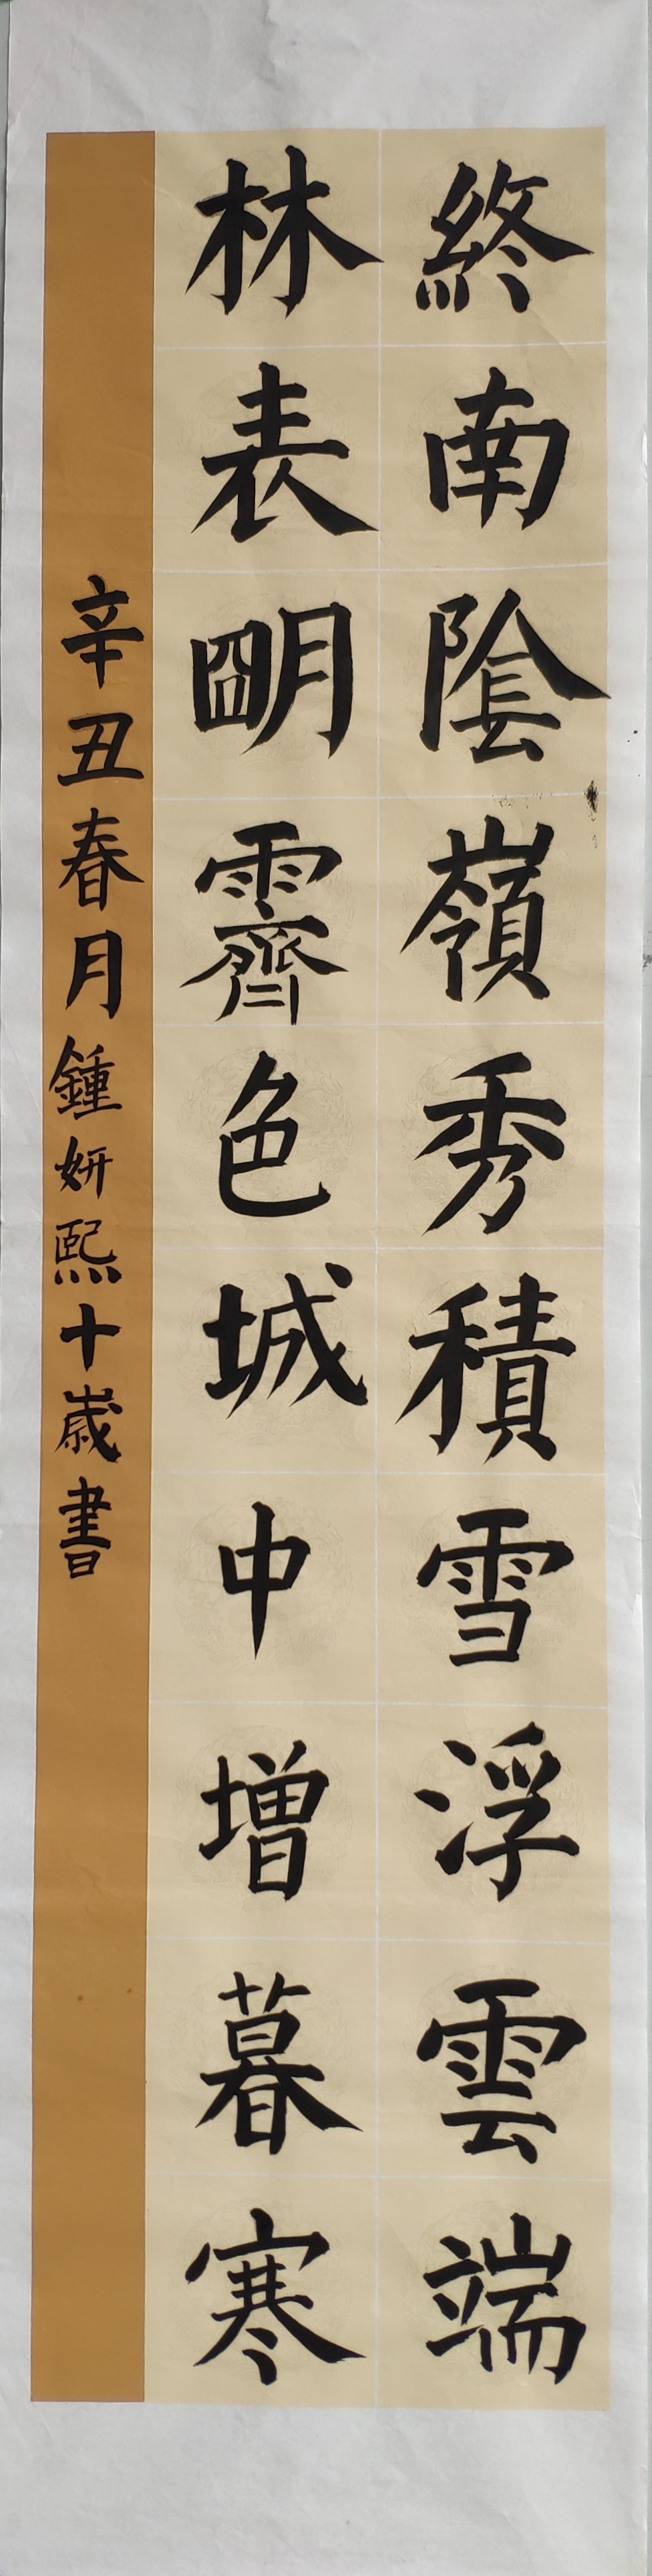 終南陰嶺秀積雪浮雲端
林表朙霽色城中增暮寒
辛丑春月鍾妍熙十歲書